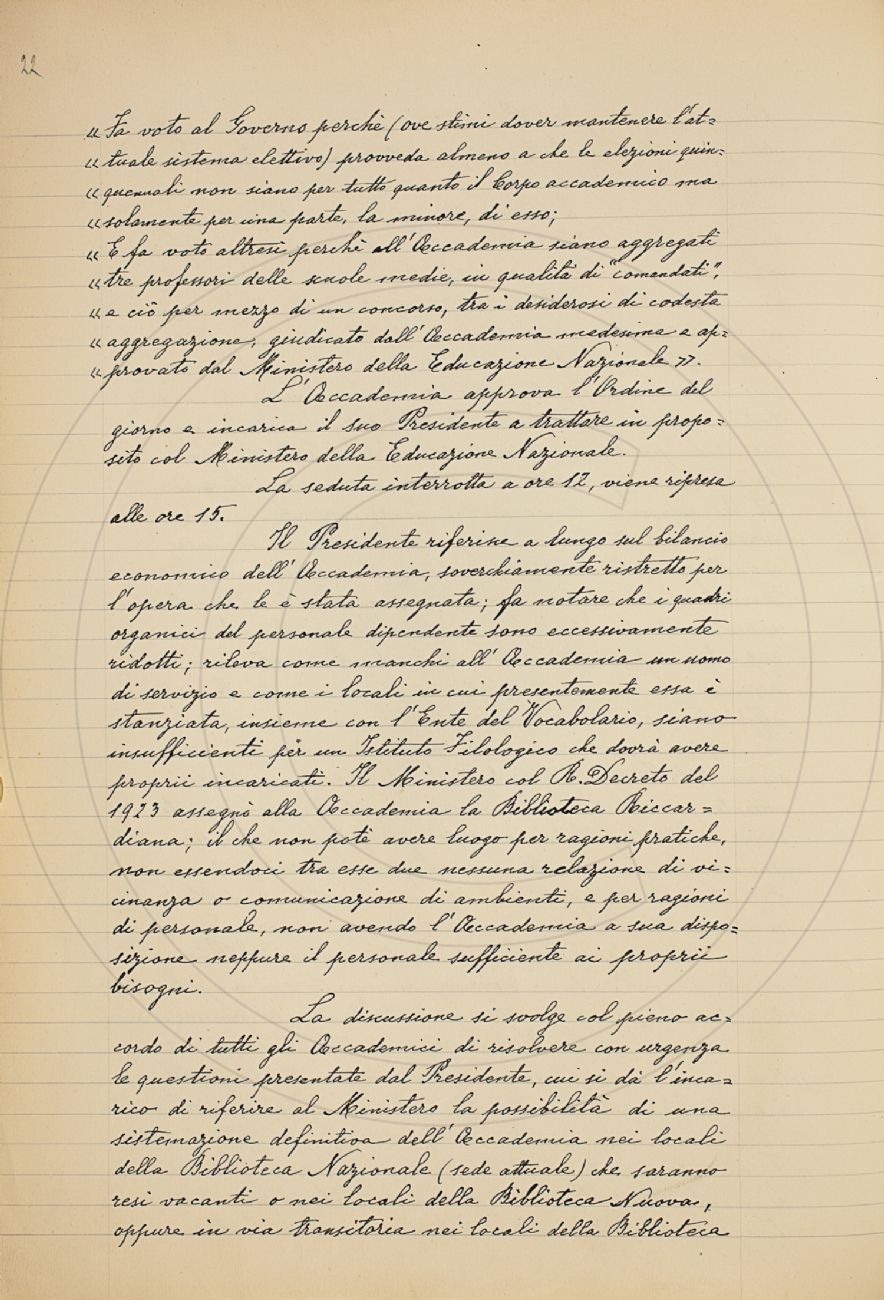 22
« Fa voto al Governo perchè (ove stimi dover mantenere l'at=
« tuale sistema elettivo) provveda almeno a che le elezioni quin=
« quennali non siano per tutto quanto il Corpo accademico ma
« solamente per una parte, la minore, di esso;
« E fa voto altresì perchè all'Accademia siano aggregati
« tre professori delle scuole medie, in qualità di "comandati",
« e ciò per mezzo di un concorso, tra i desiderosi di codesta
« aggregazione, giudicato dall'Accademia medesima e ap=
« provato dal Ministero della Educazione Nazionale ».
L'Accademia approva l'Ordine del
giorno e incarica il suo Presidente a trattare in propo=
sito col Ministero della Educazione Nazionale.
La seduta interrotta a ore 12, viene ripresa
alle ore 15.
Il Presidente riferisce a lungo sul bilancio
economico dell'Accademia, soverchiamente ristretto per
l'opera che le è stata assegnata; fa notare che i quadri
organici del personale dipendente sono eccessivamente
ridotti; rileva come manchi all'Accademia un uomo
di servizio e come i locali in cui presentemente essa è
stanziata, insieme con l'Ente del Vocabolario, siano
insufficienti per un Istituto Filologico che dovrà avere
proprii incaricati. Il Ministero col R. Decreto del
1923 assegnò alla Accademia la Biblioteca Riccar=
diana; il che non potè avere luogo per ragioni pratiche,
non essendoci tra esse due nessuna relazione di vi=
cinanza o comunicazione di ambienti, e per ragioni
di personale, non avendo l'Accademia a sua dispo=
sizione neppure il personale sufficiente ai proprii
bisogni.
La discussione si svolge col pieno ac=
cordo di tutti gli Accademici di risolvere con urgenza
le questioni presentate dal Presidente, cui si dà l'inca=
rico di riferire al Ministero la possibilità di una
sistemazione definitiva dell'Accademia nei locali
della Biblioteca Nazionale (sede attuale) che saranno
resi vacanti o nei locali della Biblioteca Nuova,
oppure in via transitoria nei locali della Biblioteca